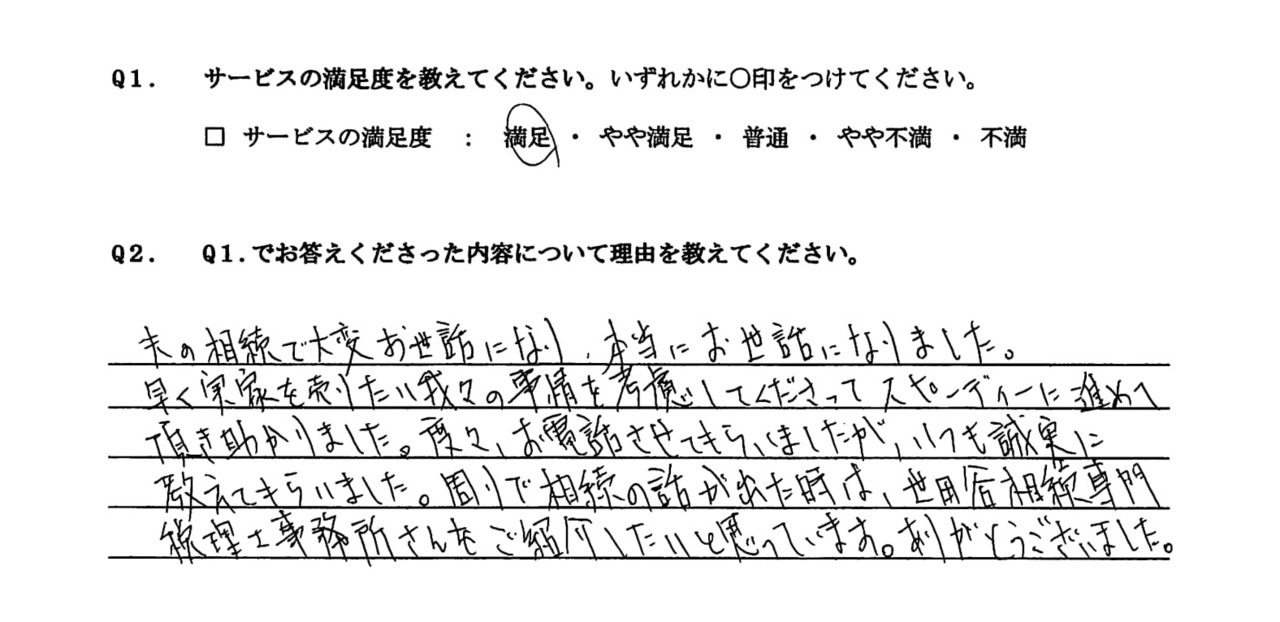 Q1. サービスの満足度を教えてください。いずれかに〇印をつけてください。
□ サービスの満足度 : 満足 ・ やや満足 ・ 普通 ・ やや不満 ・ 不満
Q2. Q1.でお答えくださった内容について理由を教えてください。
夫の相続で大変お世話になり、本当にお世話になりました。
早く実家を売りたい我々の事情を考慮してくださってスピーディーに進めて
頂き助かりました。度々、お電話させてもらいましたが、いつも誠実に
教えてもらいました。周りで相続の話が出た時は、世田谷相続専門
税理士事務所さんをご紹介したいと思っています。ありがとうございました。